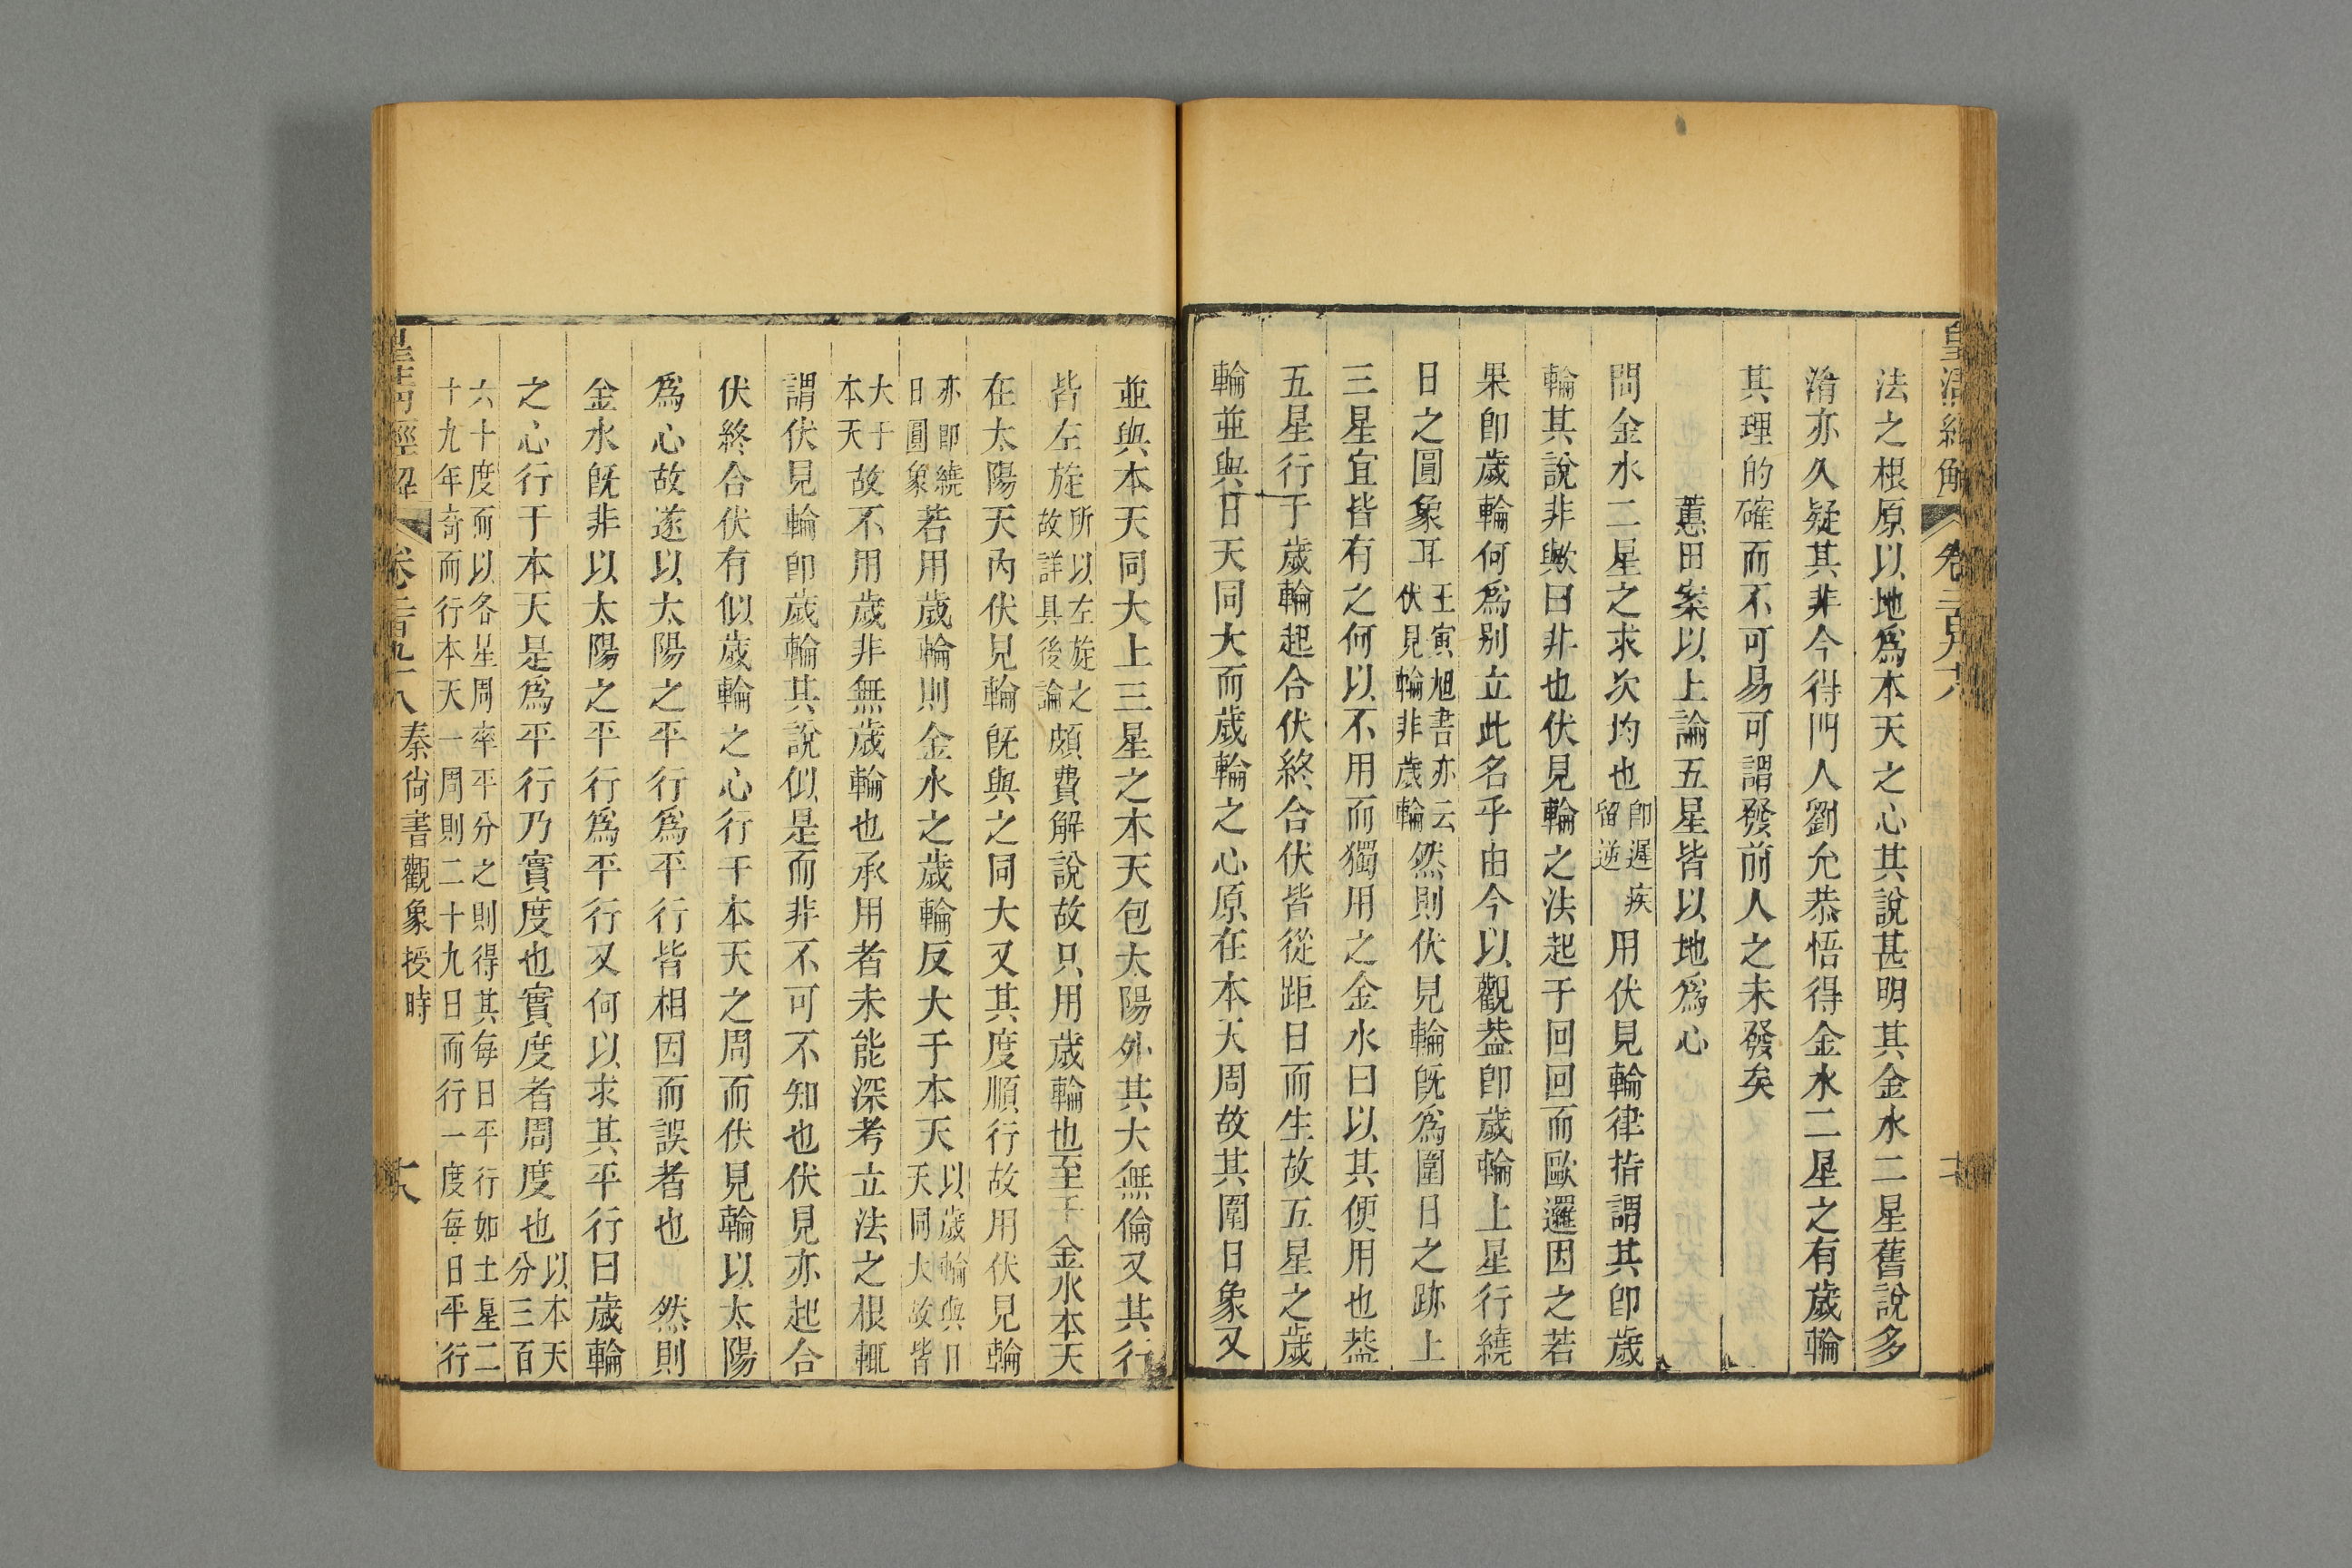 皇清經解
法之根原以地爲本天之心其說甚明其金水二星舊說多
淆亦久疑其非今得門人劉允恭悟得金水二星之有歲輪
其理的確而不可易可謂發前人之未發矣
蕙田案以上論五星皆以地爲心
問金水二星之求次均也卽遲疾留逆用伏見輪律指謂其卽歲
輪其說非歟曰非也伏見輪之法起于回回而歐邏因之若
果卽歲輪何爲别立此名乎由今以觀葢卽歲輪上星行繞
日之圓象耳王寅旭書亦云伏見輪非歲輪然則伏見輪旣爲圍日之跡上
三星宜皆有之何以不用而獨用之金水曰以其便用也葢
五星行于歲輪起合伏終合伏皆從距日而生故五星之歲
輪並與日天同大而歲輪之心原在本天周故其圍日象又
並與本天同大上三星之本天包太陽外其大無倫又其行
皆左旋所以左旋之故詳具後論頗費解說故只用歲輪也至于金水本天
在太陽天內伏見輪旣與之同大又其度順行故用伏見輪
亦卽繞日圓象若用歲輪則金水之歲輪反大于本天以歲輪與日天同大故皆
大于本天故不用歲非無歲輪也承用者未能深考立法之根輒
謂伏見輪卽歲輪其說似是而非不可不知也伏見亦起合
伏終合伏有似歲輪之心行于本天之周而伏見輪以太陽
爲心故遂以太陽之平行爲平行皆相因而誤者也　然則
金水旣非以太陽之平行爲平行又何以求其平行曰歲輪
之心行于本天是爲平行乃實度也實度者周度也以本天分三百
六十度而以各星周率平分之則得其每日平行如土星二
十九年奇而行本天一周則二十九日而行一度每日平行
秦尚書觀象授時